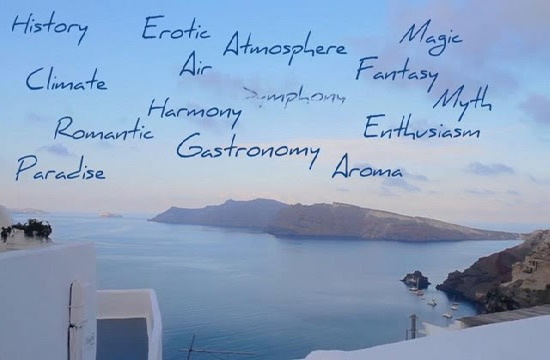 History
Erotic
Atmosphere
Magic
Air
Climate
Fantasy
Symphony
Harmony
Myth
Romantic
Enthusiasm
Gastronomy
Paradise
Aroma